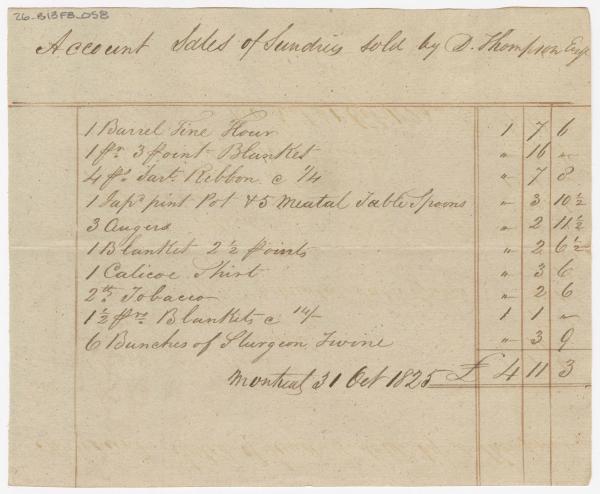 26-B13F8-058
Account Sales of Sundries sold by D. Thompson Esqr
1 Barrel Fine Flour 1 7 6
1 pr 3 point Blanket " 16 "
4 ps Tart. Ribbon c 1/4 " 7 8
1 Japd pint Pot & 5 Meatal Table Spoons " 3 10 1/2
3 Augers " 2 11 1/2
1 Blanket 2 1/2 points " 2 6 1/2
1 Calicoe Shirt " 3 6
2 lb Tobacco " 2 6
1 1/2 prs Blankets c 14/- 1 1 "
6 Bunches of Sturgeon Twine " 3 9
Montreal 31 Oct 1825 £ 4 11 3